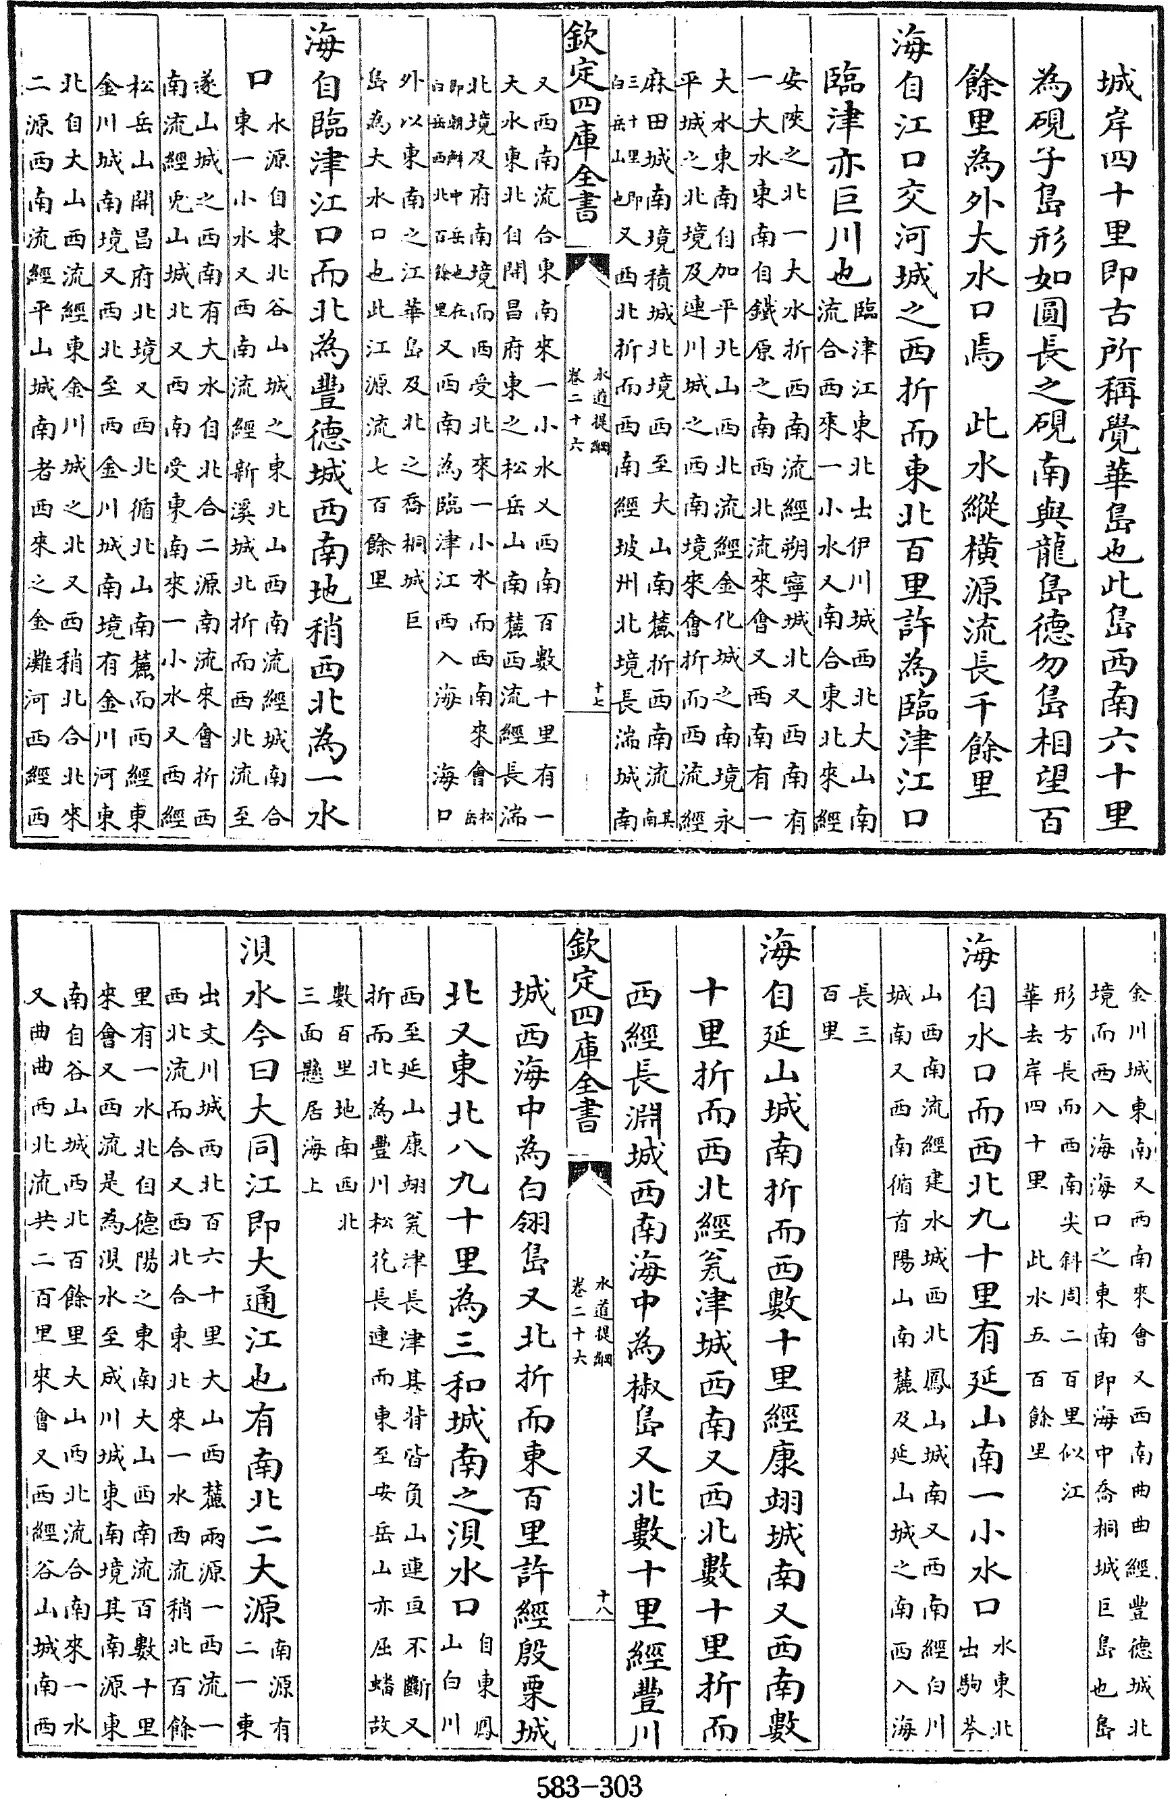 城岸四十里即古所稱覺華島也此島西南六十里
為硯子島形如圓長之硯南與龍島德勿島相望百
餘里為外大水口焉　此水縱橫源流長千餘里
海自江口交河城之西折而東北百里許為臨津江口
臨津亦巨川也
臨津江東北出伊川城西北大山南
流合西來一小水又南合東北來經
安陜之北一大水折西南流經朔寧城北又西南有
一大水東南自鐵原之南西北流來會又西南有一
大水東南自加平北山西北流經金化城之南境永
平城之北境及連川城之西南境來會折而西流經
麻田城南境積城北境西至大山南麓折西南流其南
三十里即白岳山也又西北折而西南經坡州北境長湍城南
欽定四庫全書
水道提綱
卷二十六
十七
又西南流合東南來一小水又西南百數十里有一
大水東北自開昌府東之松岳山南麓西流經長湍
北境及府南境而西受北來一小水而西南來會松岳
即朝鮮中岳也在白岳西北百餘里又西南為臨津江西入海　海口
外以東南之江華島及北之喬桐城巨
島為大水口也此江源流七百餘里
海自臨津江口而北為豐德城西南地稍西北為一水
口
水源自東北谷山城之東北山西南流經城南合
東一小水又西南流經新溪城北折而西北流至
遂山城之西南有大水自北合二源南流來會折西
南流經兎山城北又西南受東南來一小水又西經
松岳山開昌府北境又西北循北山南麓而西經東
金川城南境又西北至西金川城南境有金川河東
北自大山西流經東金川城之北又西稍北合北來
二源西南流經平山城南者西來之金灘河西經西
金川城東南又西南來會又西南曲曲經豐德城北
境而西入海海口之東南即海中喬桐城巨島也島
形方長而西南尖斜周二百里似江
華去岸四十里　此水五百餘里
海自水口而西北九十里有延山南一小水口
水東北
出駒岑
山西南流經建水城西北鳳山城南又西南經白川
城南又西南循首陽山南麓及延山城之南西入海
長三
百里
海自延山城南折而西數十里經康翊城南又西南數
十里折而西北經瓮津城西南又西北數十里折而
西經長淵城西南海中為椒島又北數十里經豐川
欽定四庫全書
水道提綱
卷二十六
十八
城西海中為白翎島又北折而東百里許經殷栗城
北又東北八九十里為三和城南之浿水口
自東鳳
山白川
西至延山康翊瓮津長津其背皆負山連亘不斷又
折而北為豐川松花長連而東至安岳山亦屈蟠故
數百里地南西北
三面懸居海上
浿水今曰大同江即大通江也有南北二大源
南源有
二一東
出文川城西北百六十里大山西麓兩源一西流一
西北流而合又西北合東北來一水西流稍北百餘
里有一水北自德陽之東南大山西南流百數十里
來會又西流是為浿水至成川城東南境其南源東
南自谷山城西北百餘里大山西北流合南來一水
又曲曲西北流共二百里來會又西經谷山城南西
583-303